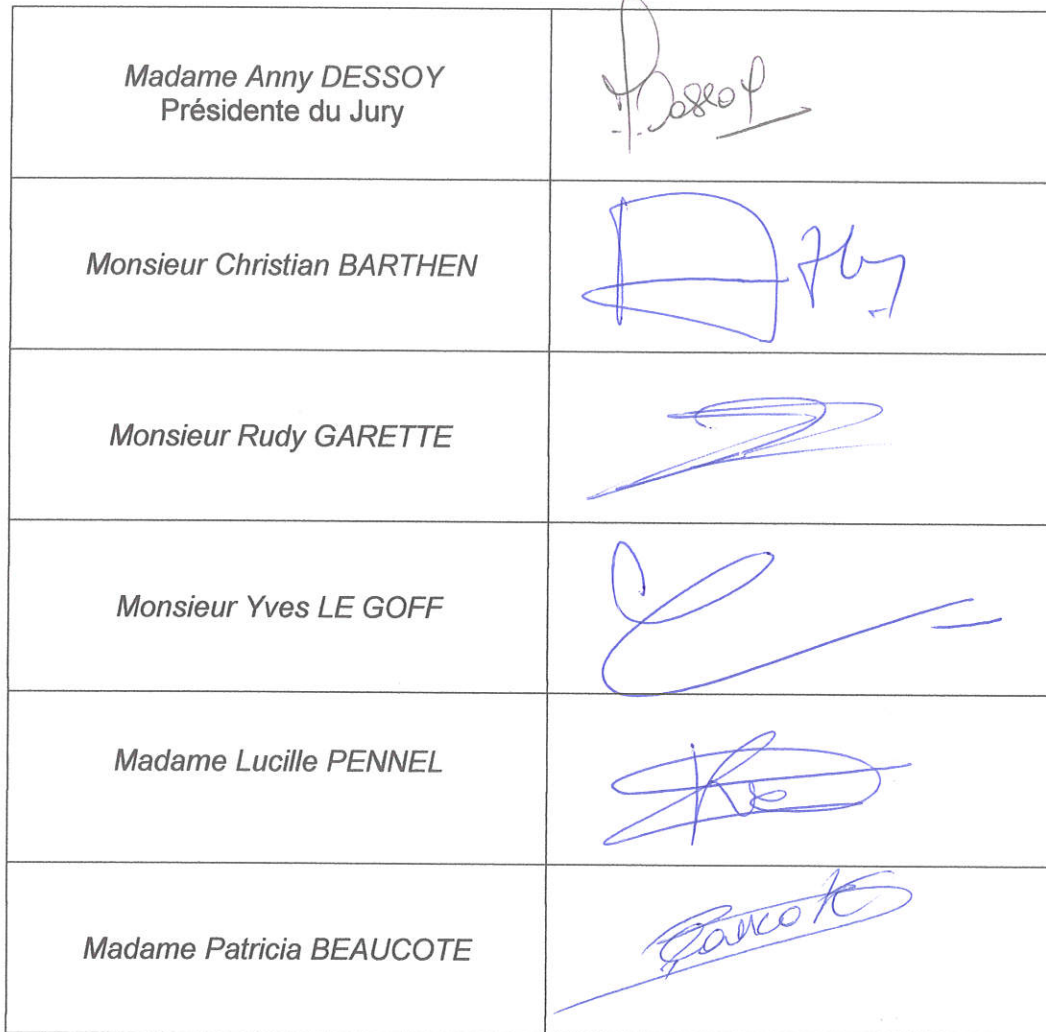 Madame Anny DESSOY
Présidente du Jury
Monsieur Christian BARTHEN
Monsieur Rudy GARETTE
Monsieur Yves LE GOFF
Madame Lucille PENNEL
Madame Patricia BEAUCOTE